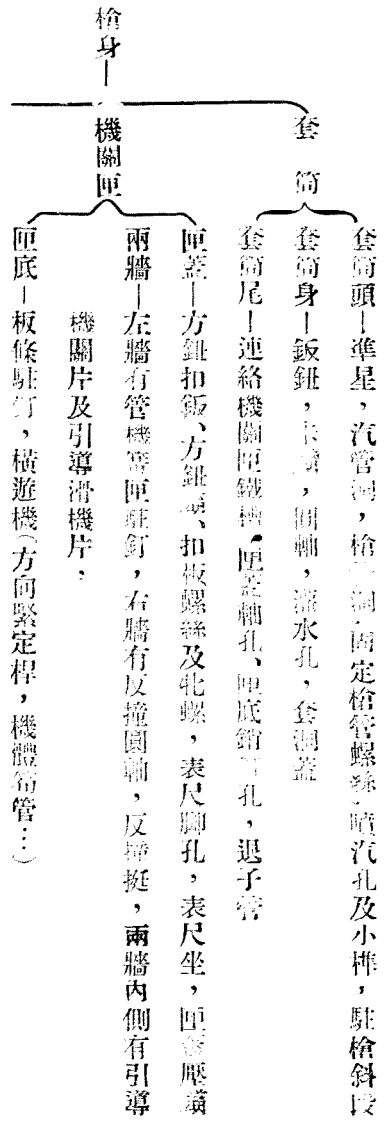 槍身—
套筒
套筒頭—準星,汽管洞,槍管洞,固定槍管螺絲,噴汽孔及小榫,駐槍斜段
套筒身—鈑鈕,圓軸,灌水孔,套洞蓋
套筒尾—連絡機關匣鐵槽,匣蓋軸孔、匣底銷釘孔,退子管
機關匣
匣蓋—方鈕扣鈑、方鈕頭、扣板螺絲及牝螺,表尺腳孔,表尺坐,匣蓋壓簧
兩牆—左牆有管機簧匣駐釘,右牆有反撞圓軸,反撞挺,兩牆內側有引導
機關片及引導滑機片,
匣底—板條駐釘,橫遊機(方向緊定桿,機體筍管…)